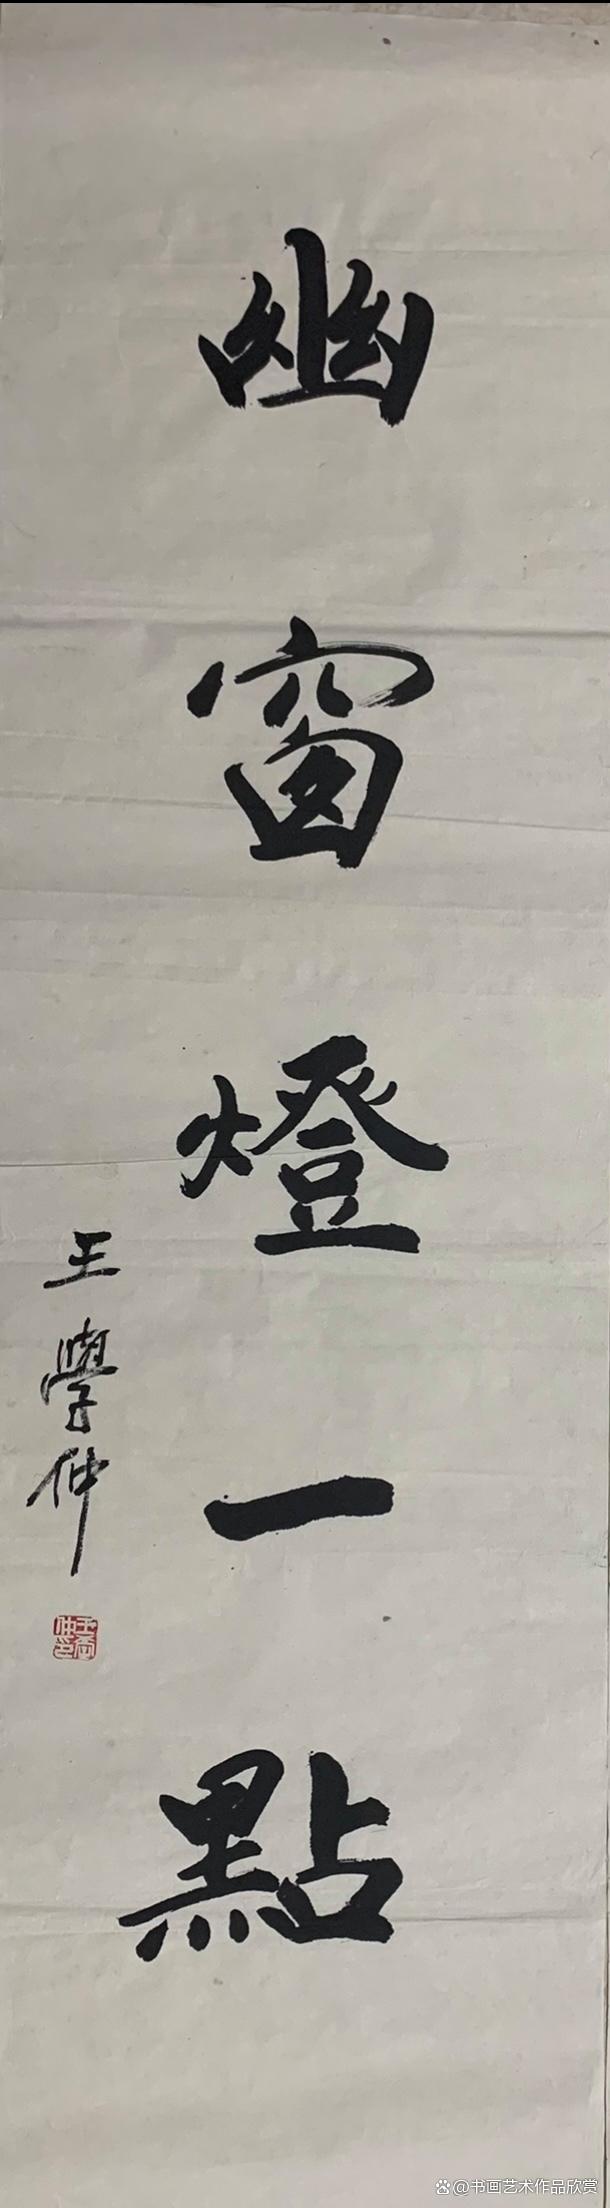 幽窗燈一點
王學仲
王學仲印
@书画艺术作品欣赏